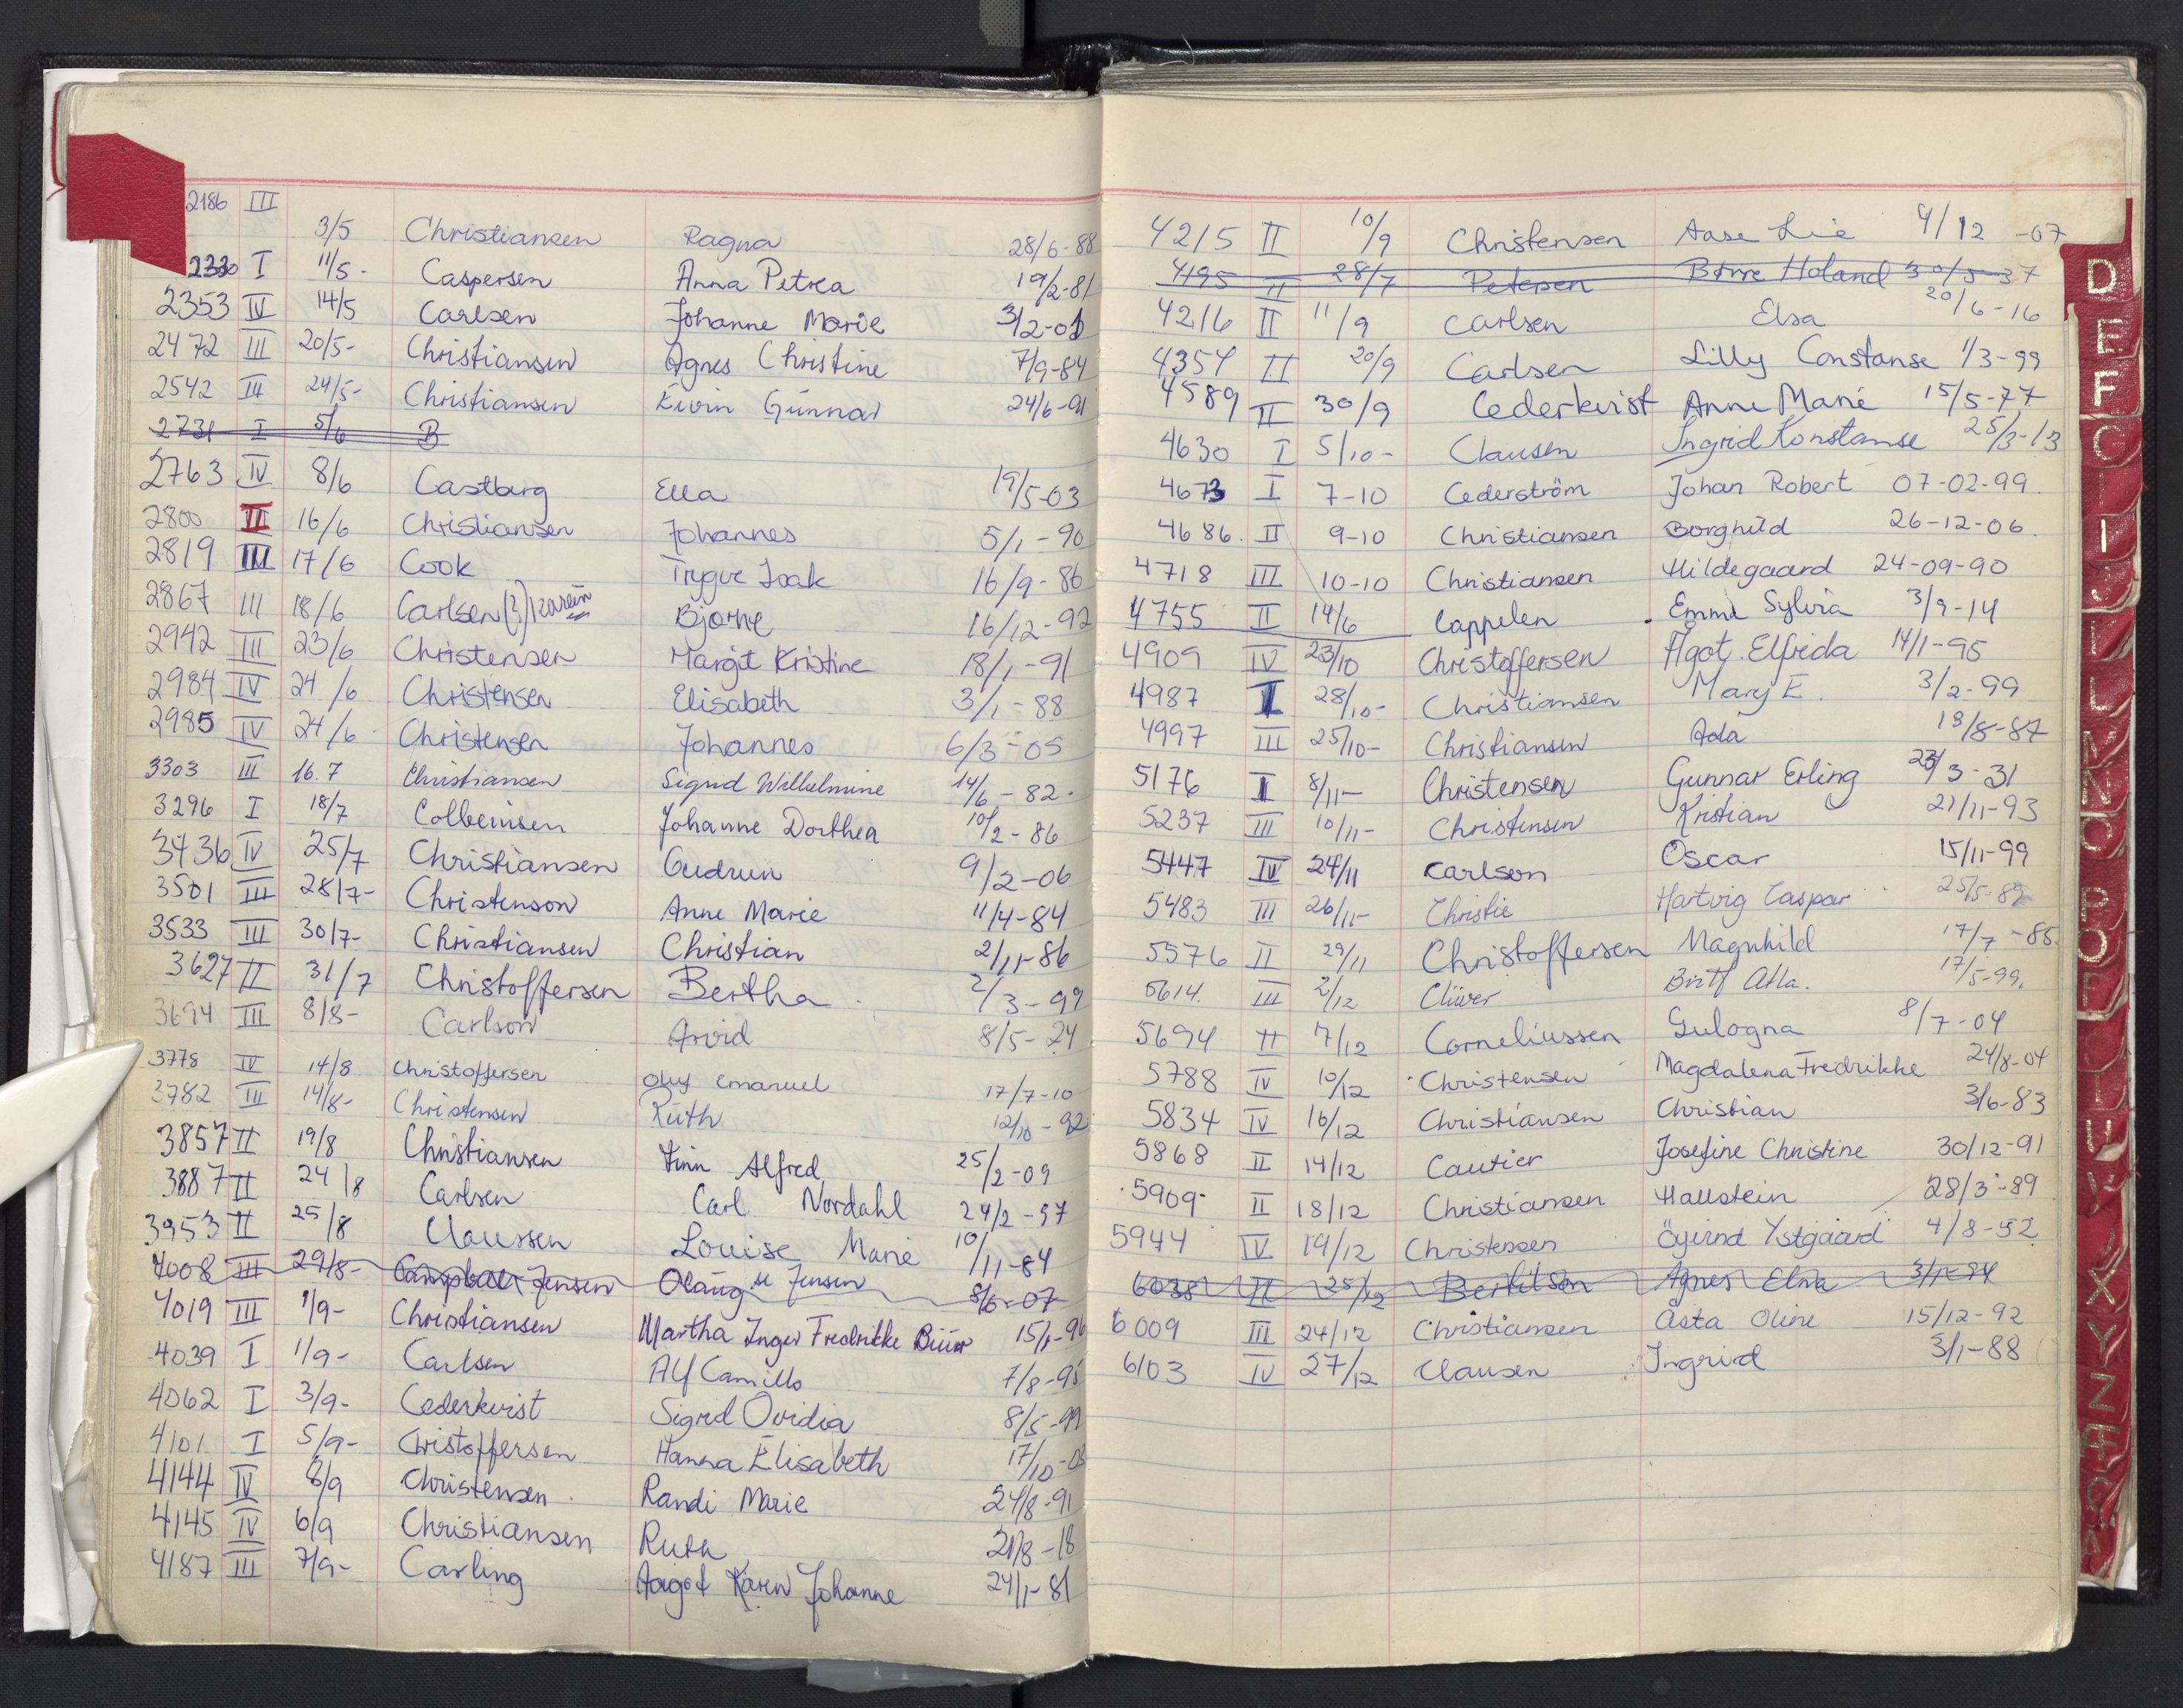 2186 III 3/5 Christiansen Ragna 28/6-88
2330 I 11/5- Caspersen Anna Petrea 19/2-81
2353 IV 14/5 Carlsen Johanne Marie 3/2-01
2472 III 20/5- Christiansen Agnes Christine 7/9-84
2542 III 24/5- Christiansen Eivin Gunnar 24/6-91
2731 I 5/6 B
2763 IV 8/6 Castberg Ella 19/5-03
2800 III 16/6 Christiansen Johannes 5/1-90
2819 III 17/6 Cook Trygve Isak 16/9-86
2867 III 18/6 Carlsen (?) Bjarne 16/12-92
2942 III 23/6 Christensen Margit Kristine 18/1-91
2984 IV 24/6 Christensen Elisabeth 3/1-88
2985 IV 24/6 Christensen Johannes 6/3-05
3303 III 16.7 Christiansen Sigrid Wilhelmine 14/6-82.
3296 I 18/7 Colbeinsen Johanne Dorthea 10/2-86
3436 IV 25/7 Christiansen Gudrun 9/2-06
3501 III 28/7- Christenson Anne Marie 11/4-84
3533 III 30/7- Christiansen Christian 2/11-86
3627 II 31/7 Christoffersen Bertha 2/3-97
3694 III 8/8- Carlson Arvid 8/5-24
3778 IV 14/8 Christoffersen Oluf Emanuel 17/7-10
3782 III 14/8- Christensen Ruth 12/10-92
3857 II 19/8 Christiansen Finn Alfred 25/2-09
3887 II 24/8 Carlsen Carl Nordahl 24/2-97
3953 II 25/8 Claussen Louise Marie 10/11-84
4008 III 29/8- Jensen Jensen 8/6-07
4019 III 1/9- Christiansen Martha Inger Fredrikke 15/1-96
4039 I 1/9- Carlsen Alf Camillo 7/8-95
4062 I 3/9- Cederkvist Sigrid Ovidia 8/5-99
4101 I 5/9- Christoffersen Hanna Elisabeth 17/10-08
4144 IV 8/9 Christensen Randi Marie 24/8-91
4145 IV 6/9 Christiansen Ruth 21/8-18
4187 III 7/9- Carling Aagot Karen Johanne 24/1-81
4215 II 10/9 Christensen Aase Lie 4/12-07
4195 II 28/7 Petersen Børre Holand 30/5-37
4216 II 11/9 Carlsen Elsa 20/6-16
4354 II 20/9 Carlsen Lilly Constanse 1/3-99
4589 II 30/9 Cederkvist Anne Marie 15/5-77
4630 I 5/10- Clausen Ingrid Konstanse 25/3-13
4673 I 7-10 Cederström Johan Robert 07-02-99.
4686. II 9-10 Christiansen Borghild 26-12-06.
4718 III 10-10 Christiansen Hildegaard 24-09-90
4755 II 14/6 Cappelen Emmi Sylvia 3/9-14
4909 IV 23/10 Christoffersen Ågot Elfrida 14/1-95
4987 I 28/10- Christiansen Mary E. 3/2-99
4997 III 25/10- Christiansen Ada 19/8-87
5176 I 8/11- Christensen Gunnar Erling 23/3-31
5237 III 10/11- Christensen Kristian 21/11-93
5447 IV 24/11 Carlson Oscar 15/11-99
5483 III 26/11- Christie Hartvig Caspar 25/5-
5576 II 29/11 Christoffersen Magnhild 17/7-85
5614. III 2/12 Clüver Britt 17/5-99.
5694 II 7/12 Corneliussen Gulogna 8/7-04
5788 IV 10/12 Christensen Magdalena Fredrikke 24/8-04
5834 IV 16/12 Christiansen Christian 3/6-83
5868 II 14/12 Cautier Josefine Christine 30/12-91
5909 II 18/12 Christiansen Hallstein 28/3-89
5944 IV 19/12 Christensen Öyvind Ystgaard 4/8-52
6038 II 25/12 Bertelsen Agnes Elna 3/11-94
6009 III 24/12 Christiansen Asta Oline 15/12-92
6103 IV 27/12 Clausen Ingrid 3/1-88
D
E
F
G
I
J
L
L
N
N
O
P
Ø
X
Y
Z